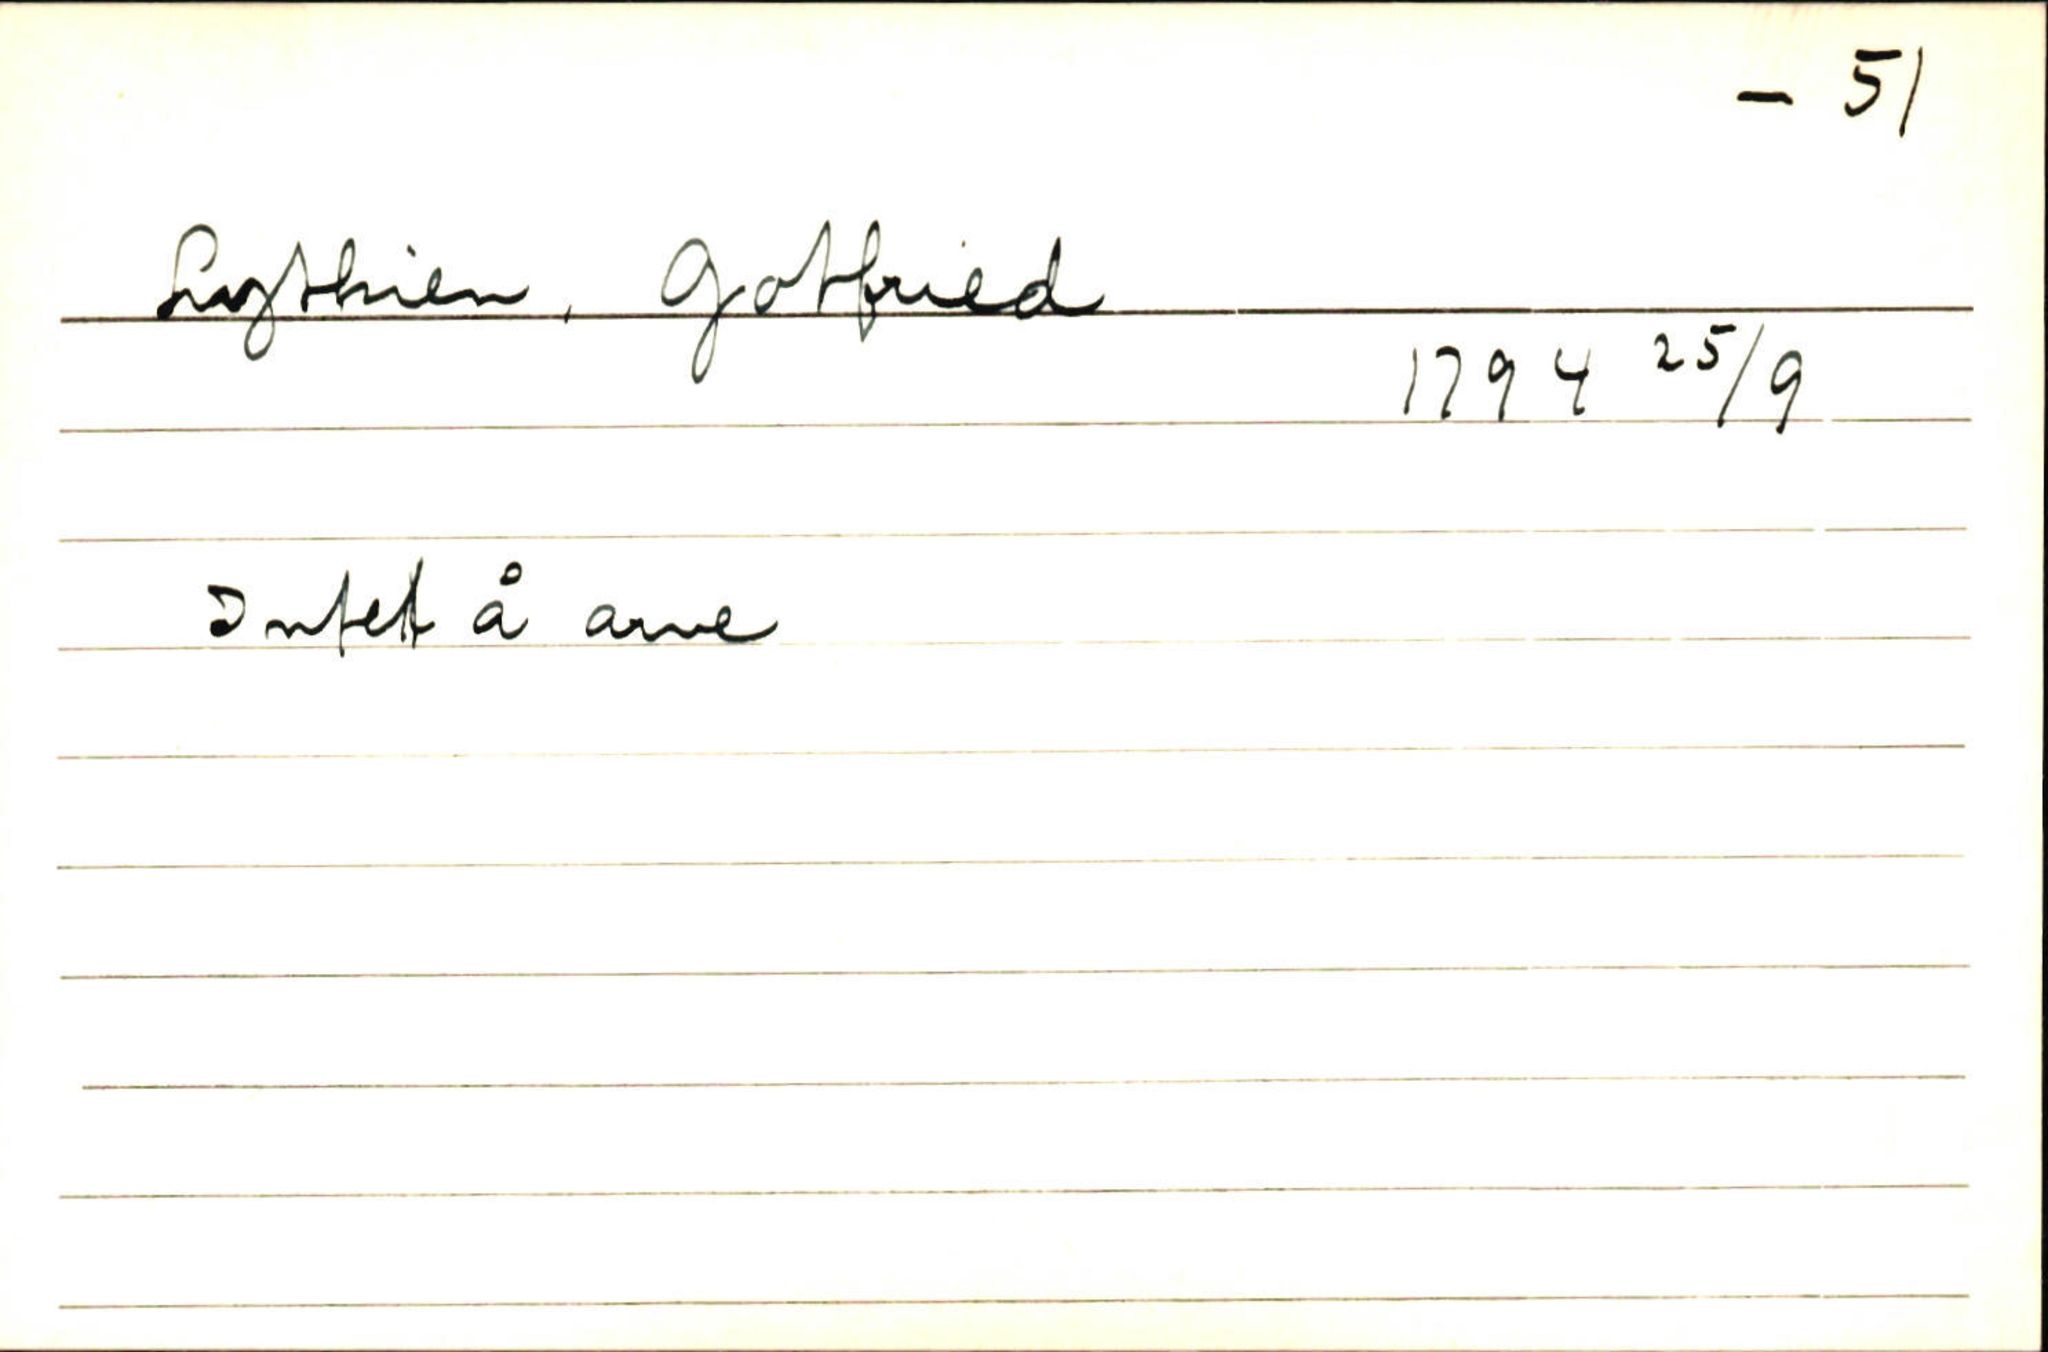 - 51
Lythien, Gotfried
1794 25/9
Intet å arve